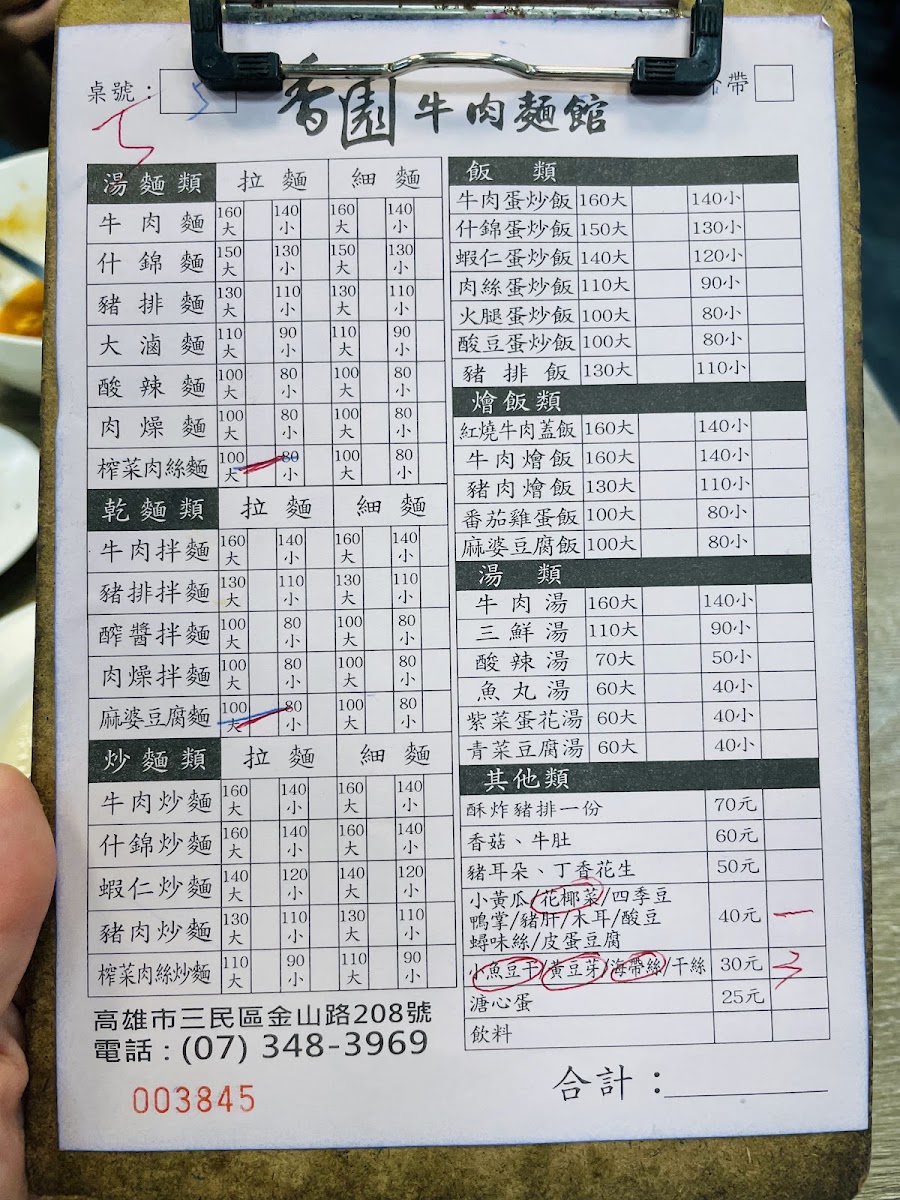 桌號：5
帶
香園牛肉麵館
湯麵類 拉麵 細麵
牛肉麵 160大 140小 160大 140小
什錦麵 150大 130小 150大 130小
豬排麵 130大 110小 130大 110小
大滷麵 110大 90小 110大 90小
酸辣麵 100大 80小 100大 80小
肉燥麵 100大 80小 100大 80小
榨菜肉絲麵 100大 80小 100大 80小
乾麵類 拉麵 細麵
牛肉拌麵 160大 140小 160大 140小
豬排拌麵 130大 110小 130大 110小
醡醬拌麵 100大 80小 100大 80小
肉燥拌麵 100大 80小 100大 80小
麻婆豆腐麵 100大 80小 100大 80小
炒麵類 拉麵 細麵
牛肉炒麵 160大 140小 160大 140小
什錦炒麵 160大 140小 160大 140小
蝦仁炒麵 140大 120小 140大 120小
豬肉炒麵 130大 110小 130大 110小
榨菜肉絲炒麵 110大 90小 110大 90小
高雄市三民區金山路208號
電話：(07) 348-3969
003845
飯類
牛肉蛋炒飯 160大 140小
什錦蛋炒飯 150大 130小
蝦仁蛋炒飯 140大 120小
肉絲蛋炒飯 110大 90小
火腿蛋炒飯 100大 80小
酸豆蛋炒飯 100大 80小
豬排飯 130大 110小
燴飯類
紅燒牛肉蓋飯 160大 140小
牛肉燴飯 160大 140小
豬肉燴飯 130大 110小
番茄雞蛋飯 100大 80小
麻婆豆腐飯 100大 80小
湯類
牛肉湯 160大 140小
三鮮湯 110大 90小
酸辣湯 70大 50小
魚丸湯 60大 40小
紫菜蛋花湯 60大 40小
青菜豆腐湯 60大 40小
其他類
酥炸豬排一份 70元
香菇、牛肚 60元
豬耳朵、丁香花生 50元
小黃瓜/花椰菜/四季豆
鴨掌/豬肝/木耳/酸豆 40元 一
蟳味絲/皮蛋豆腐
小魚豆干/黃豆芽/海帶絲/干絲 30元 3
溏心蛋 25元
飲料
合計：